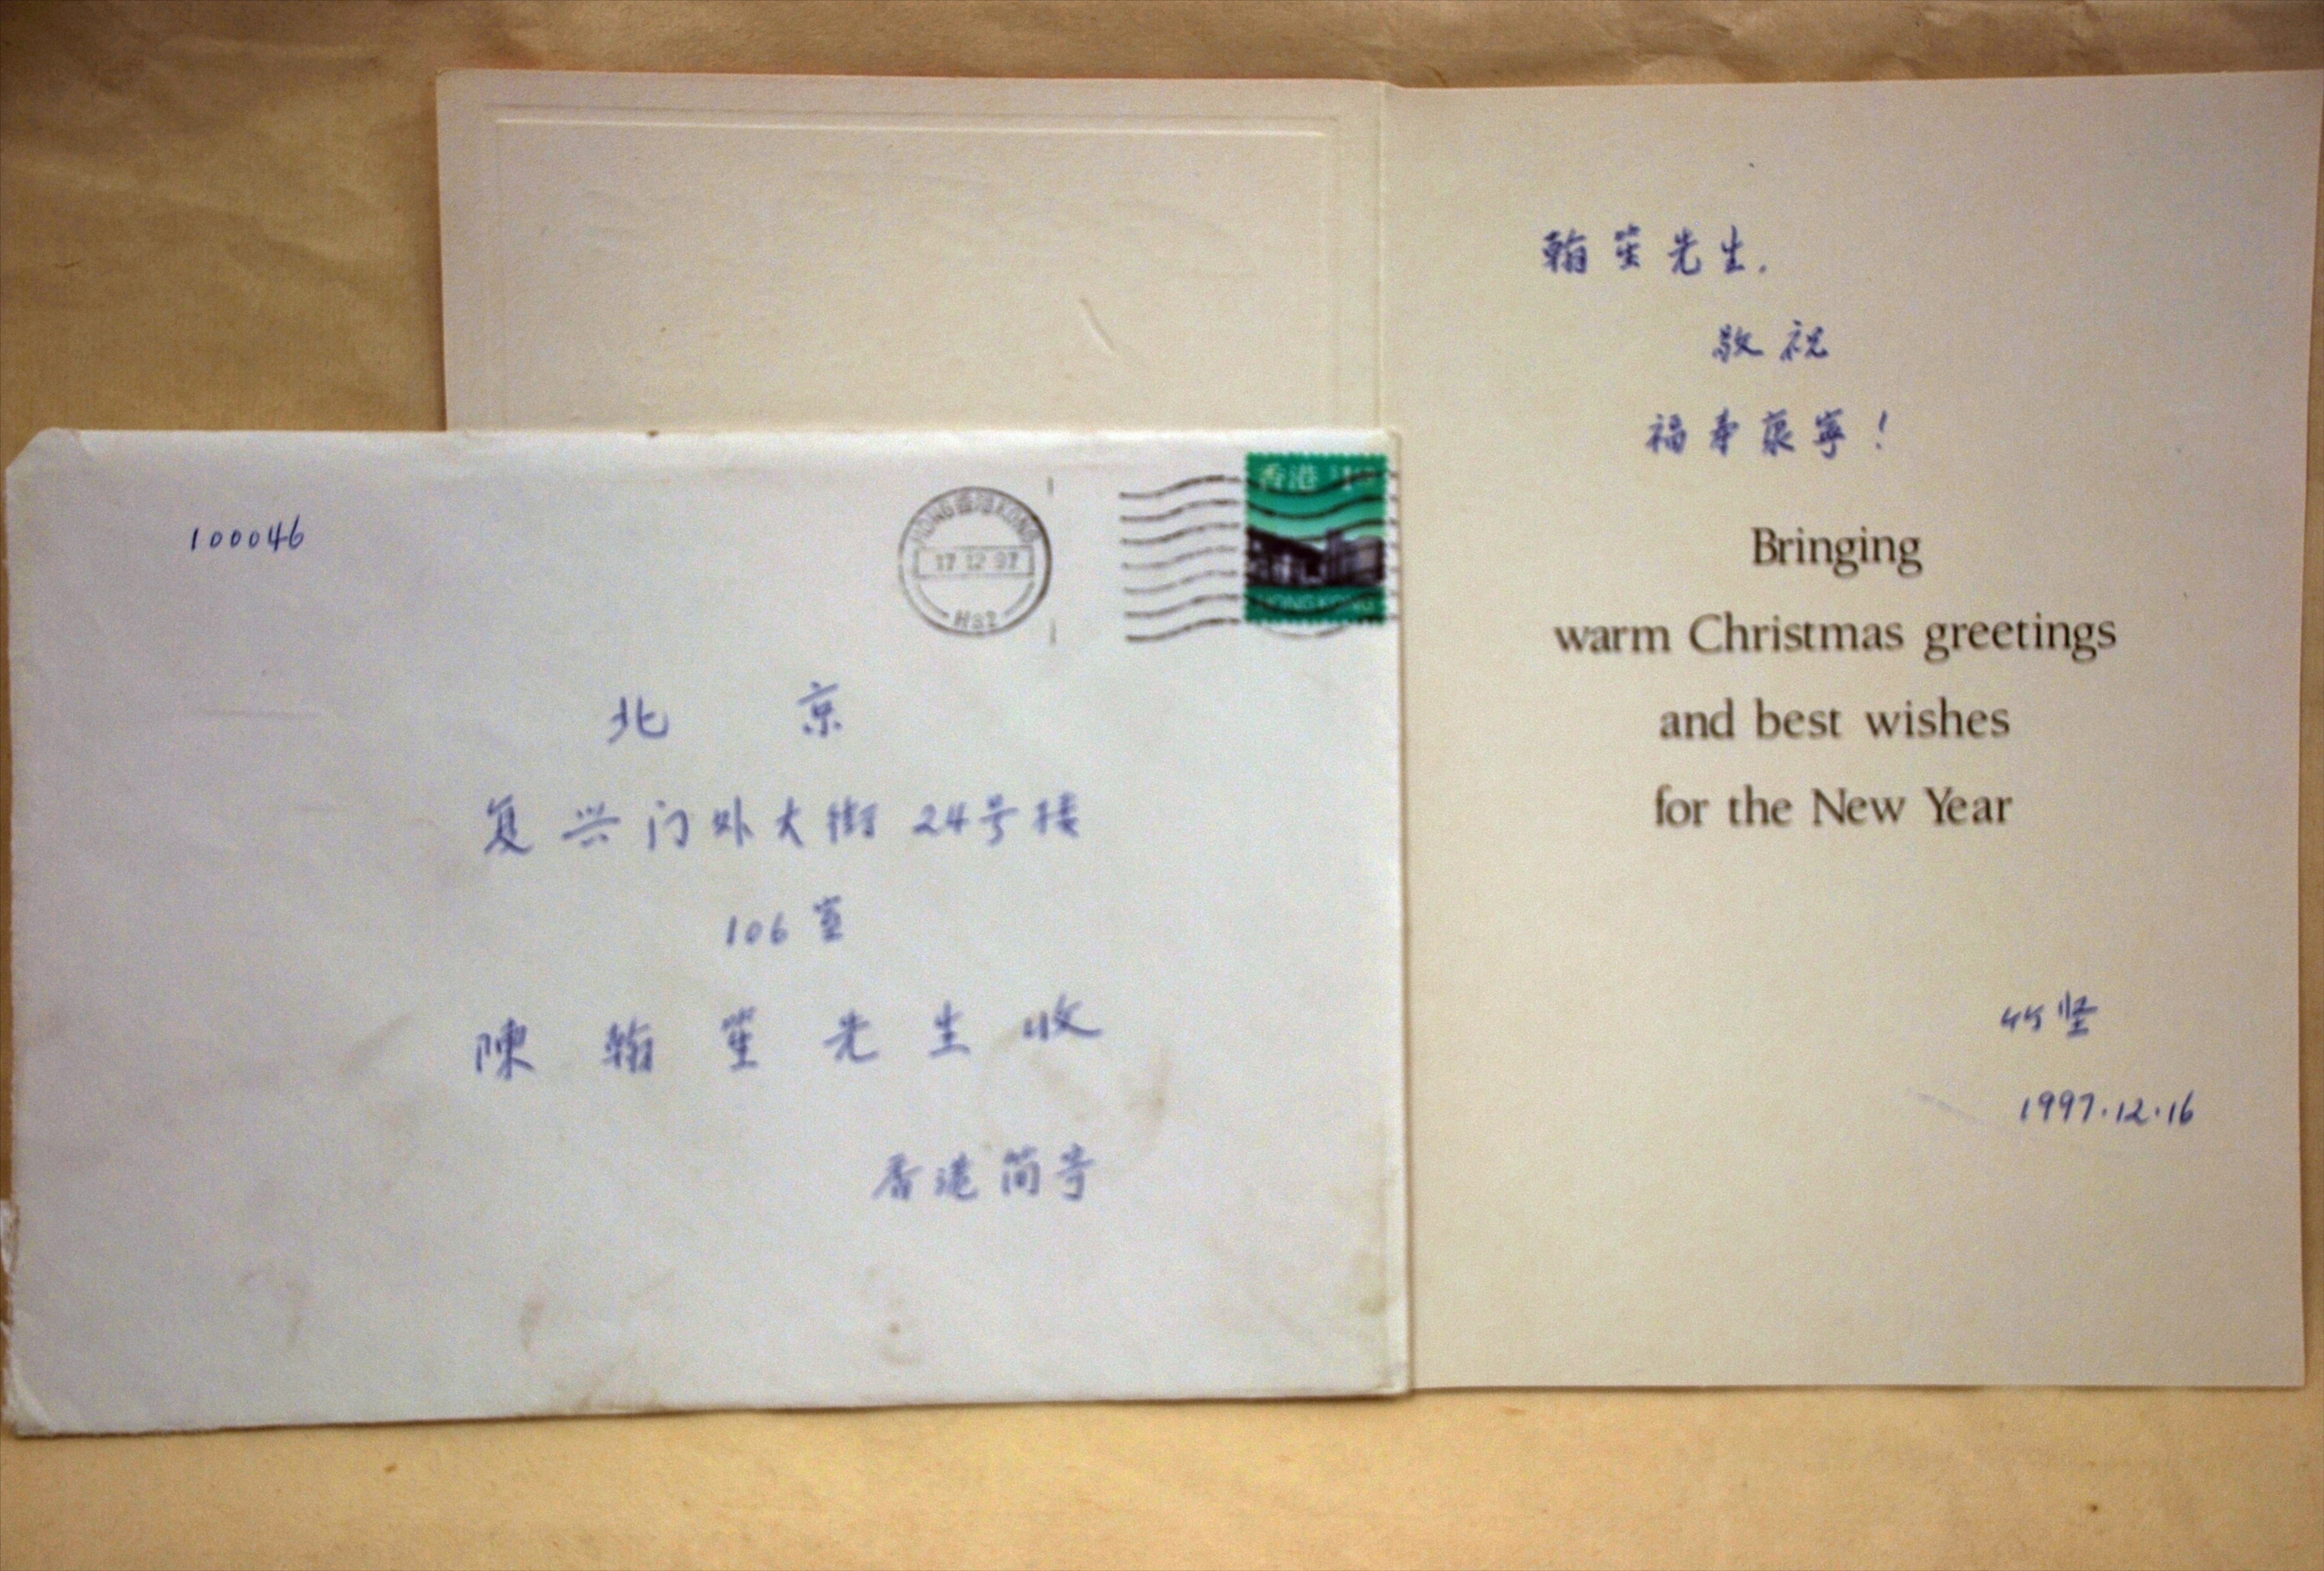 100046
HONG 香港 KONG
17 12 97
香港
HONG KONG
北 京
复兴门外大街 24号楼
106室
陳翰笙先生收
香港简寄
翰笙先生.
敬祝
福寿康寧！
Bringing
warm Christmas greetings
and best wishes
for the New Year
竹坚
1997.12.16